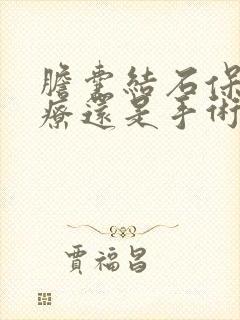 膽囊結石保
療還是手術
賈福昌